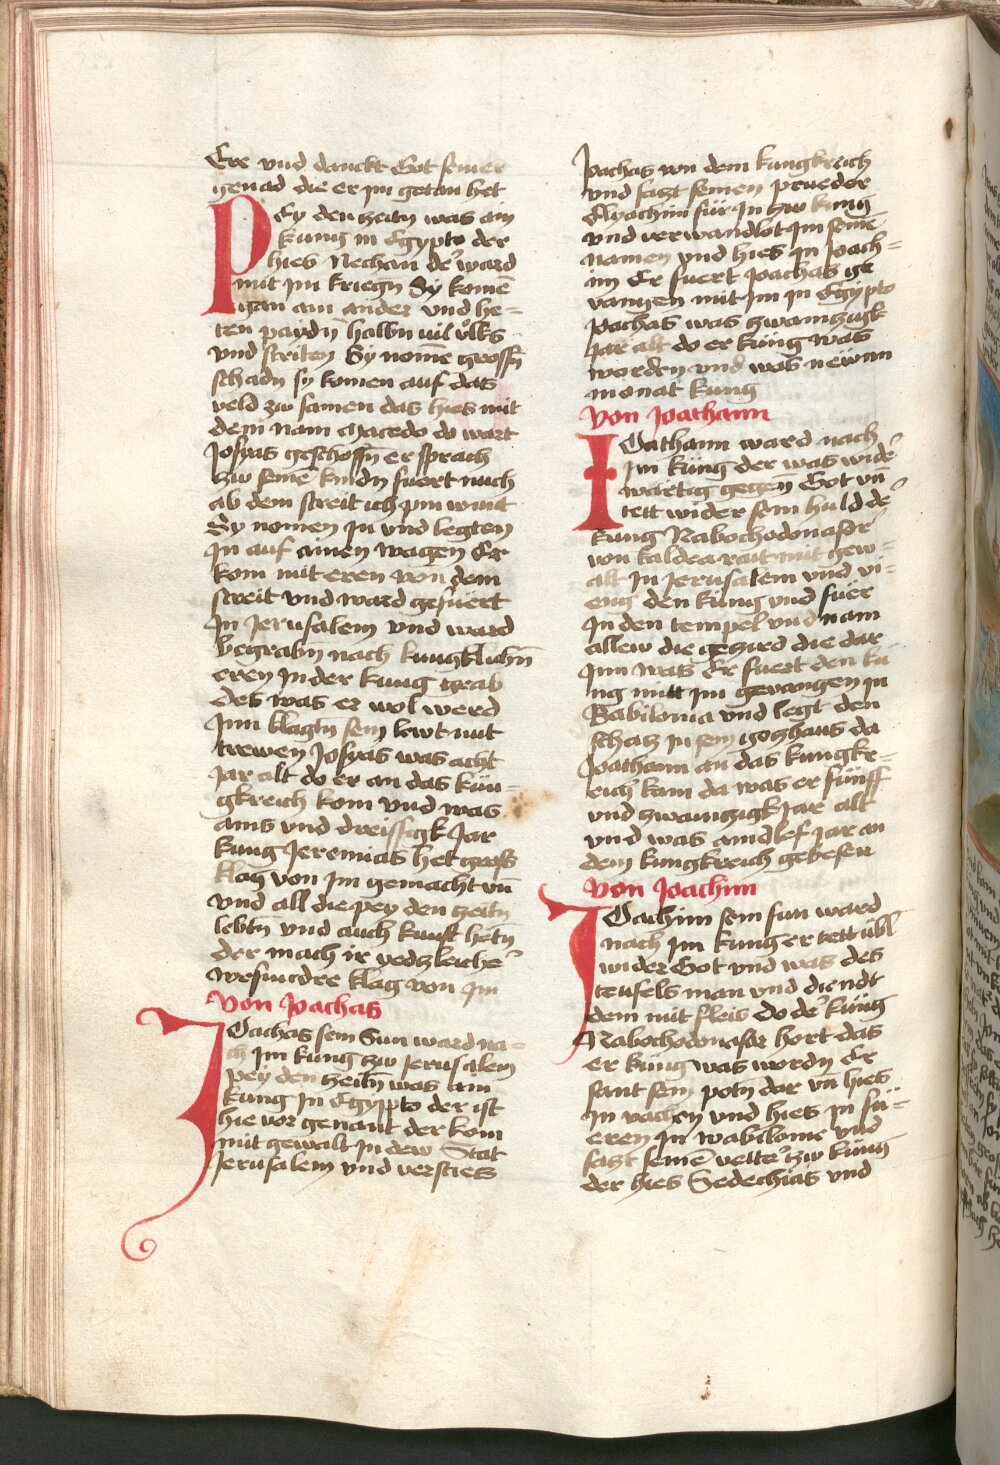 Ere vnd danckt Got seiner
genad die er jm getan het
Pey den zeitn was ain
kung in Egypto der
hies Nechau der ward
mit jm kriegn Sy kome
gan an ander vnd he-
ten paydn halbn vil volks
vnd striten Sy nomē grossn̄
schadn sy komen auf das
veld zw samen das hies mit
dem nam Macedo do wart
Josyas geschossn̄ er sprach
zw seinē kindn fuert mich
ab dem streit ich pin wunt
Sy nomen jn vnd legten
jn auf ainen wagen Er
kom mit eren von dem
streit vnd ward gefuert
jn Jerusalem vnd ward
begrabn nach kungklichn̄
eren jn der kung grab
des was er wol werd
jnn klagtn sein lewt mit
trewen Josyas was acht
jar alt do er an das kun-
gkreich kom vnd was
ains vnd dreissigk Jar
kung Jeremias het gross
klag von jm gemacht vn̄
vnd all die pey den zeitn
lebtn vnd auch kunst hetn
der mach ir yedsleicher
besunder klag von jm
Von Joachas
Joachas sein Sun ward na-
ch jm kung zw Jerusalem
pey den zeitn̄ was ain
kung jn Egypto der ist
hie vor genant der kom
mit gewalt jn dew Stat
Jerusalem vnd versties
Joachas von dem kungkreich
vnd satzt seinen prueder
Elyachim für jn zw kung
vnd verwandlot jm seinē
namen vnd hies jn Joach-
im Er fuert Joachas ge
vangen mit jm jn Egypto
Joachas was zwainzigk
jar alt do er küng was
worden vnd was newnn
monat kung
Von Joathann
Joathann ward nach
jm küng der was wider
wärtig gegen Got vn̄
tett wider sein huld der
kung Nabochodonasor
von kaldea rait mit gew-
alt jn Jerusalem vnd vi-
eng den küng vnd fuer
jn den tempel vnd nam
allew die gezird die dar
jnn was Er fuert den ku
ng mitt jm gevangen jn
Babilonia vnd legt den
schatz jn sein gotzhaus da
Joathann an das kungkr-
eich kam da was er fünff
vnd zwainzigk jar alt
vnd was aindlef jar an
dem kungkreich gebesen
Von Joachim
Joachim sein sun ward
nach jm kung er tett übl
wider Got vnd was des
teufels man vnd diendt
dem mit fleis do der küng
Nabochodonasar hort das
er küng was wordn Er
sant sein potn dar vn̄ hies
jn vachen vnd hies jn fü-
eren jn wabilonie vnd
satzt seinē vetter zw küng
der hies Sedechias vnd